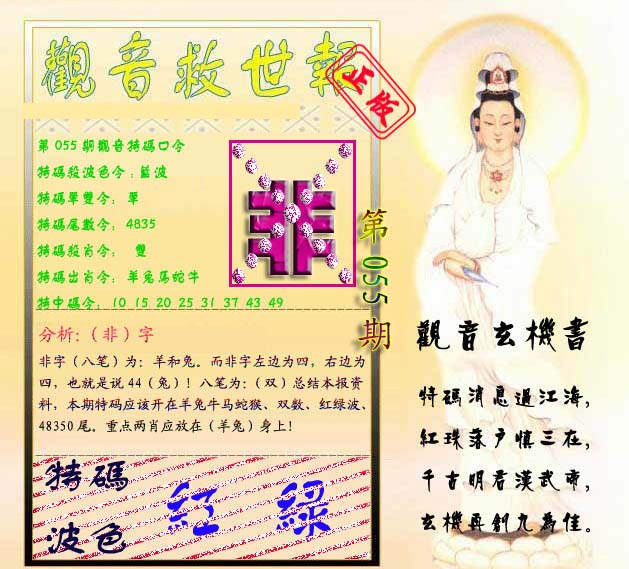 觀音救世報
正版
第 055 期觀音特碼口令
特碼殺波色令：藍波
特碼單雙令： 單
特碼尾數令： 4835
特碼殺肖令： 雙
特碼出肖令： 羊兔馬蛇牛
特中碼令： 10 15 20 25 31 37 43 49
非
第 055 期
分析:（非）字
非字（八笔）为：羊和兔。而非字左边为四，右边为
四，也就是说 44（兔）！八笔为：（双）总结本报资
料，本期特码应该开在羊兔牛马蛇猴、双数、红绿波、
48350 尾。重点两肖应放在（羊兔）身上！
特碼
波色
紅 綠
觀音玄機書
特碼消息過江海，
紅珠落戶慎三在，
千古明君漢武帝，
玄機再創九為佳。